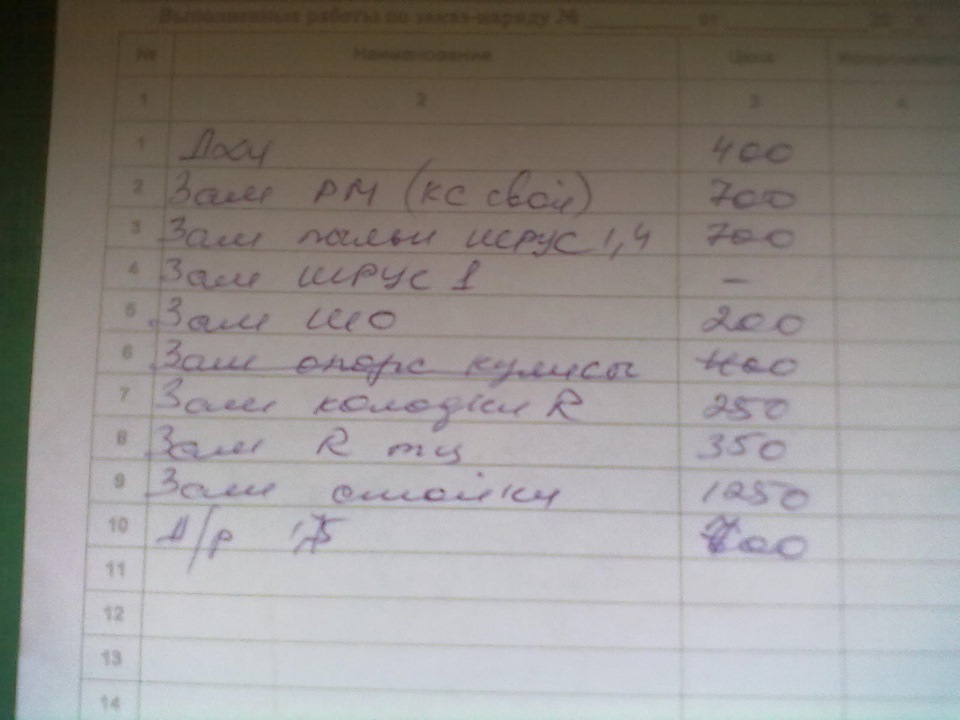 Выполненные работы по заказ-наряду № от 20 г.
№ Наименование Цена
1 2 3 4
1 400
2 Зам РМ (КС свой) 700
3 Зам шрус 1,4 700
4 Зам ШРУС 1 –
5 Зам ШО 200
6 Зам опорс кулисы 400
7 Зам колодки R 250
8 Зам R тц 350
9 Зам 1250
10 Д/р 700
11
12
13
14